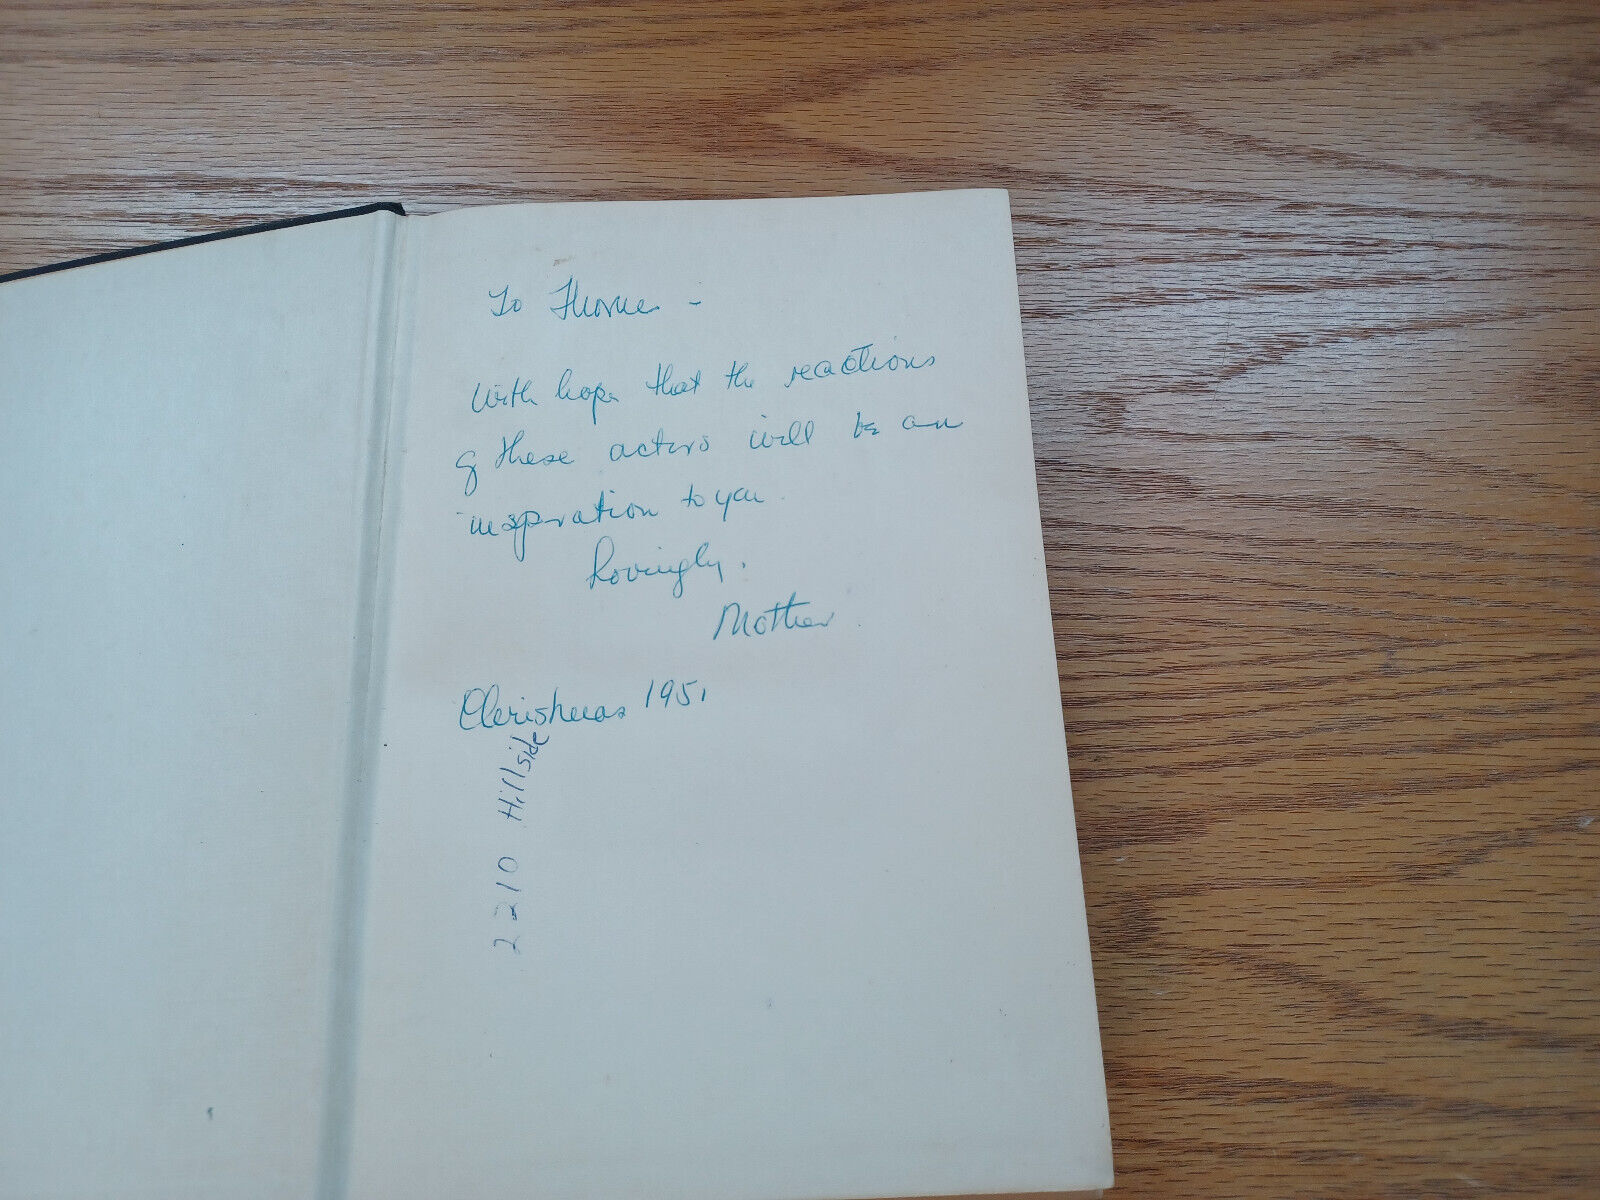 To Thorne -
With hope that the reactions
of these actors will be an
inspiration to you.
Lovingly,
Mother
Christmas 1951
2210 Hillside